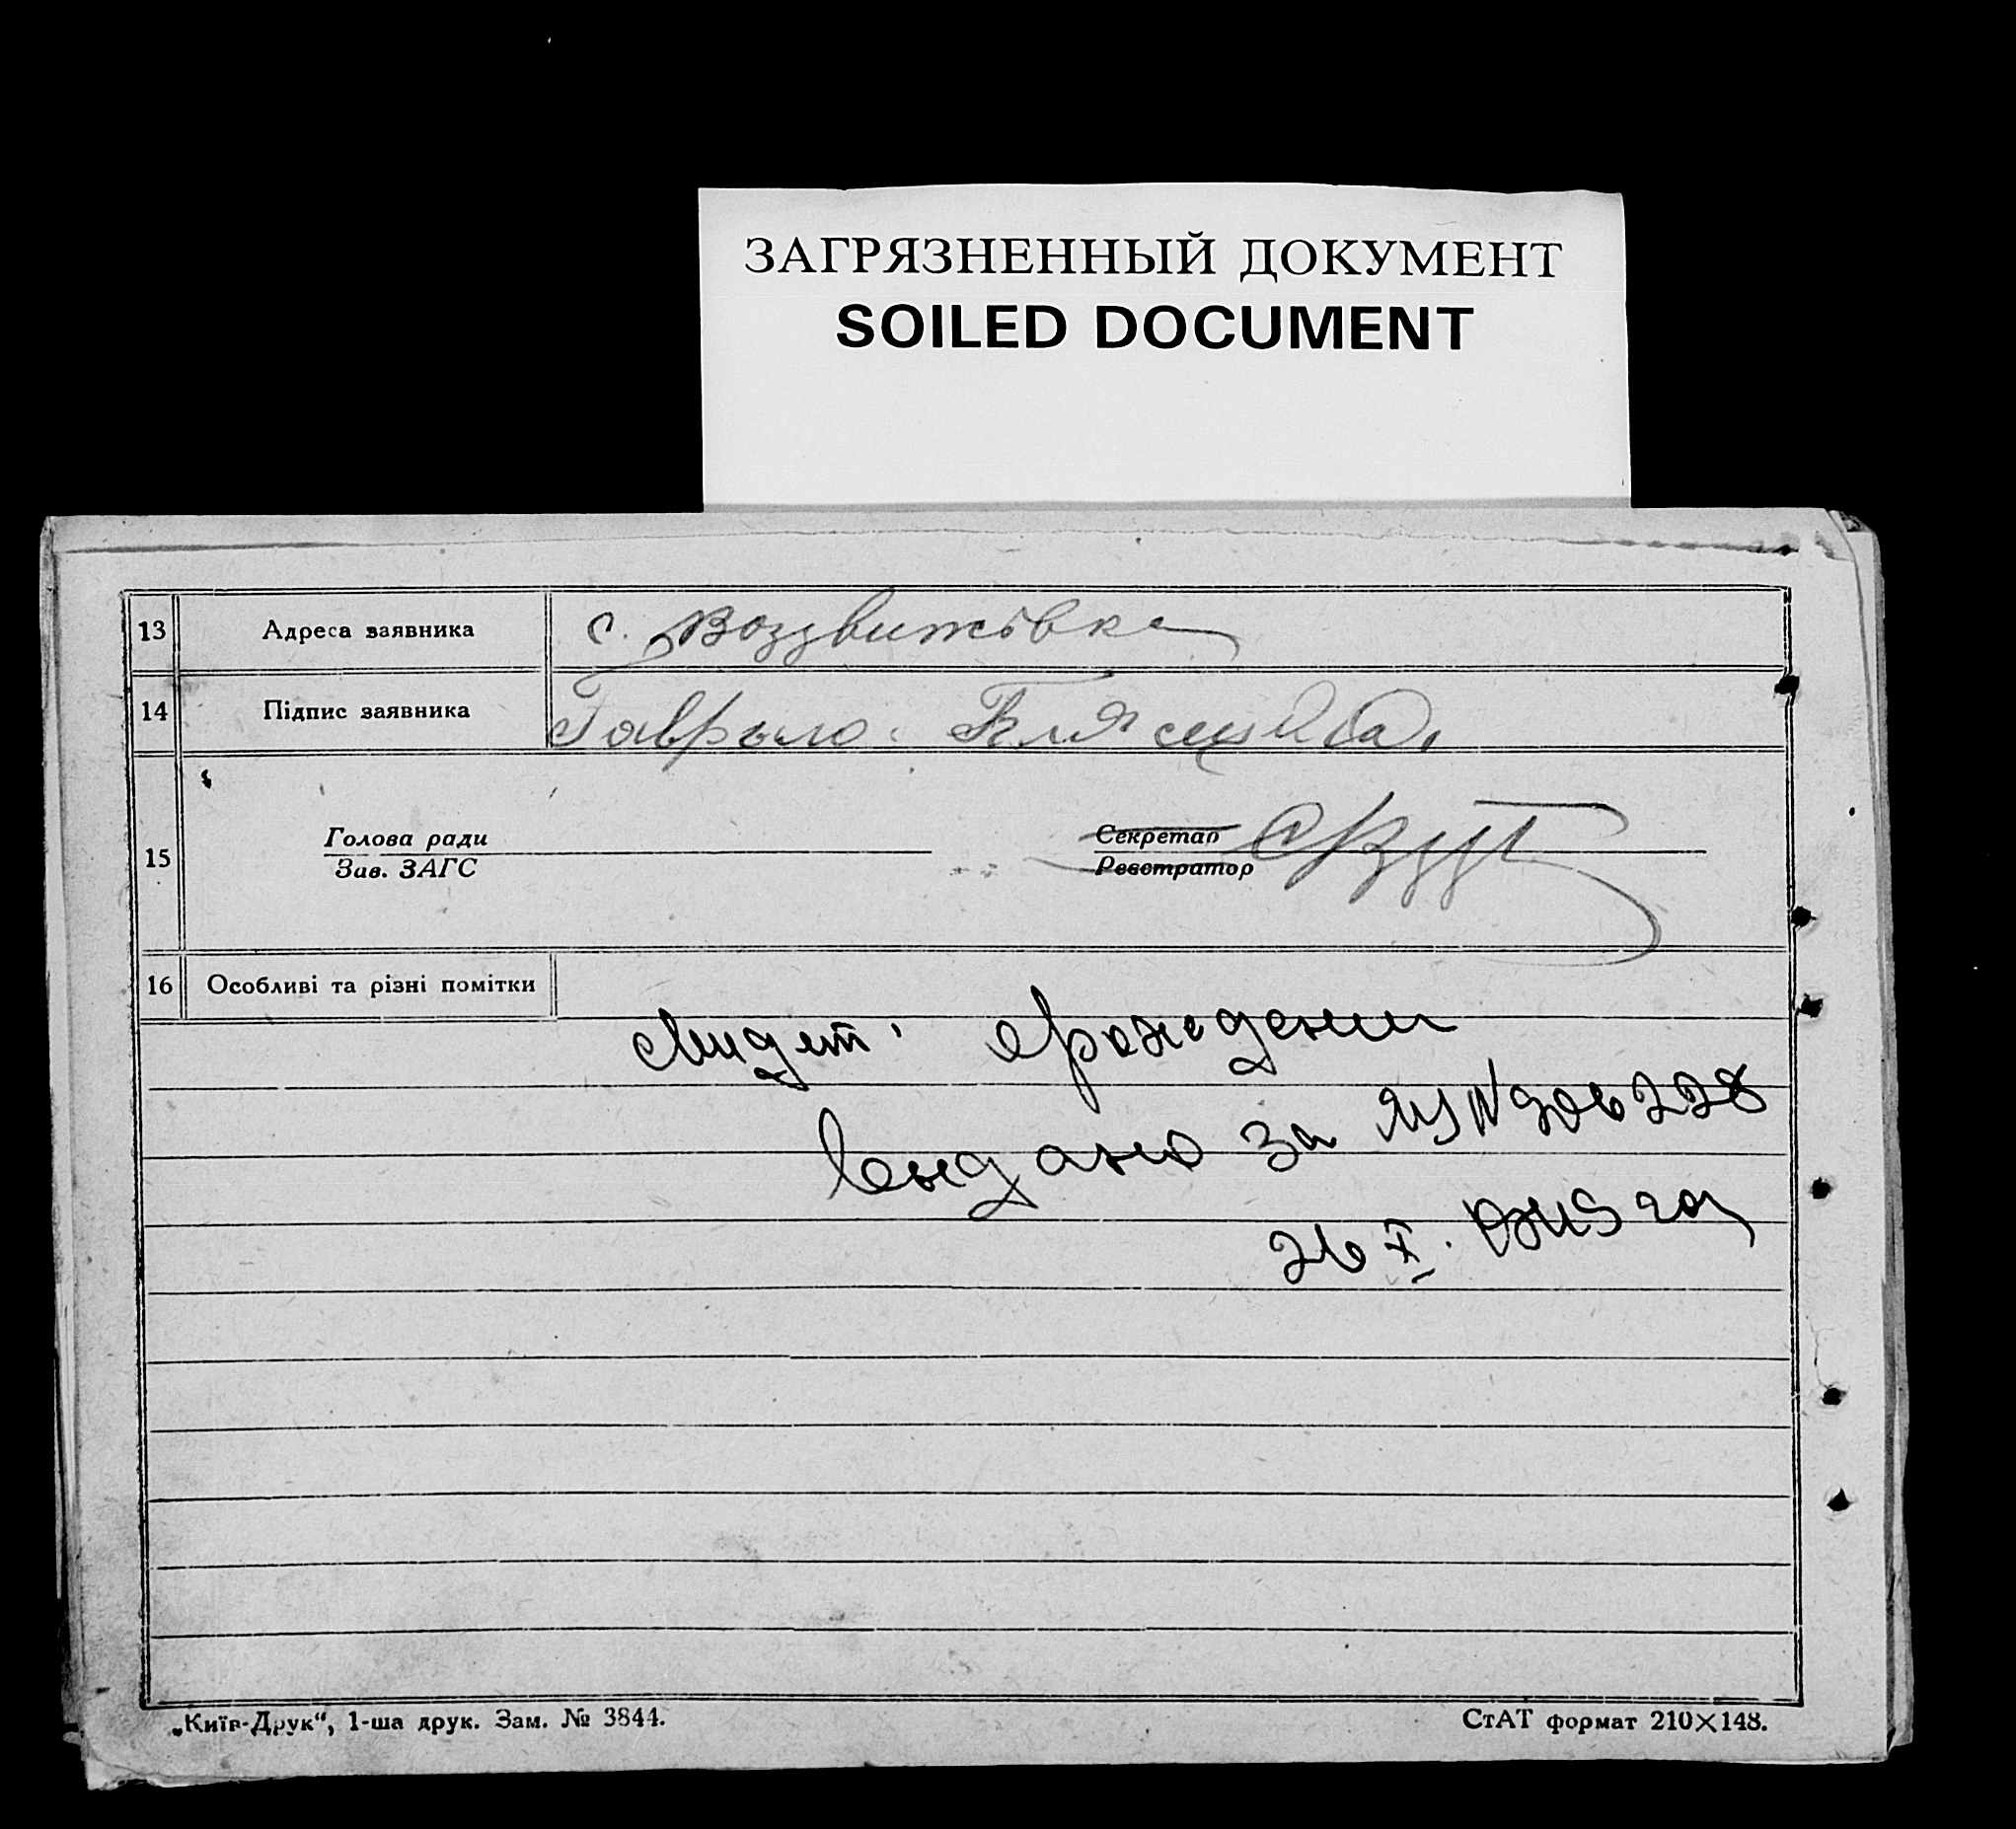 ЗАГРЯЗНЕННЫЙ ДОКУМЕНТ
SOILED DOCUMENT
13 Адреса заявника с. Воздвижівка
14 Підпис заявника Гаврыло
15 Голова ради Секретар
Зав. ЗАГС Реєстратор
16 Особливі та різні помітки
Свидет. о рождении
выдано за №
26 X
„Київ-Друк“, 1-ша друк. Зам. № 3844. СтАТ формат 210×148.